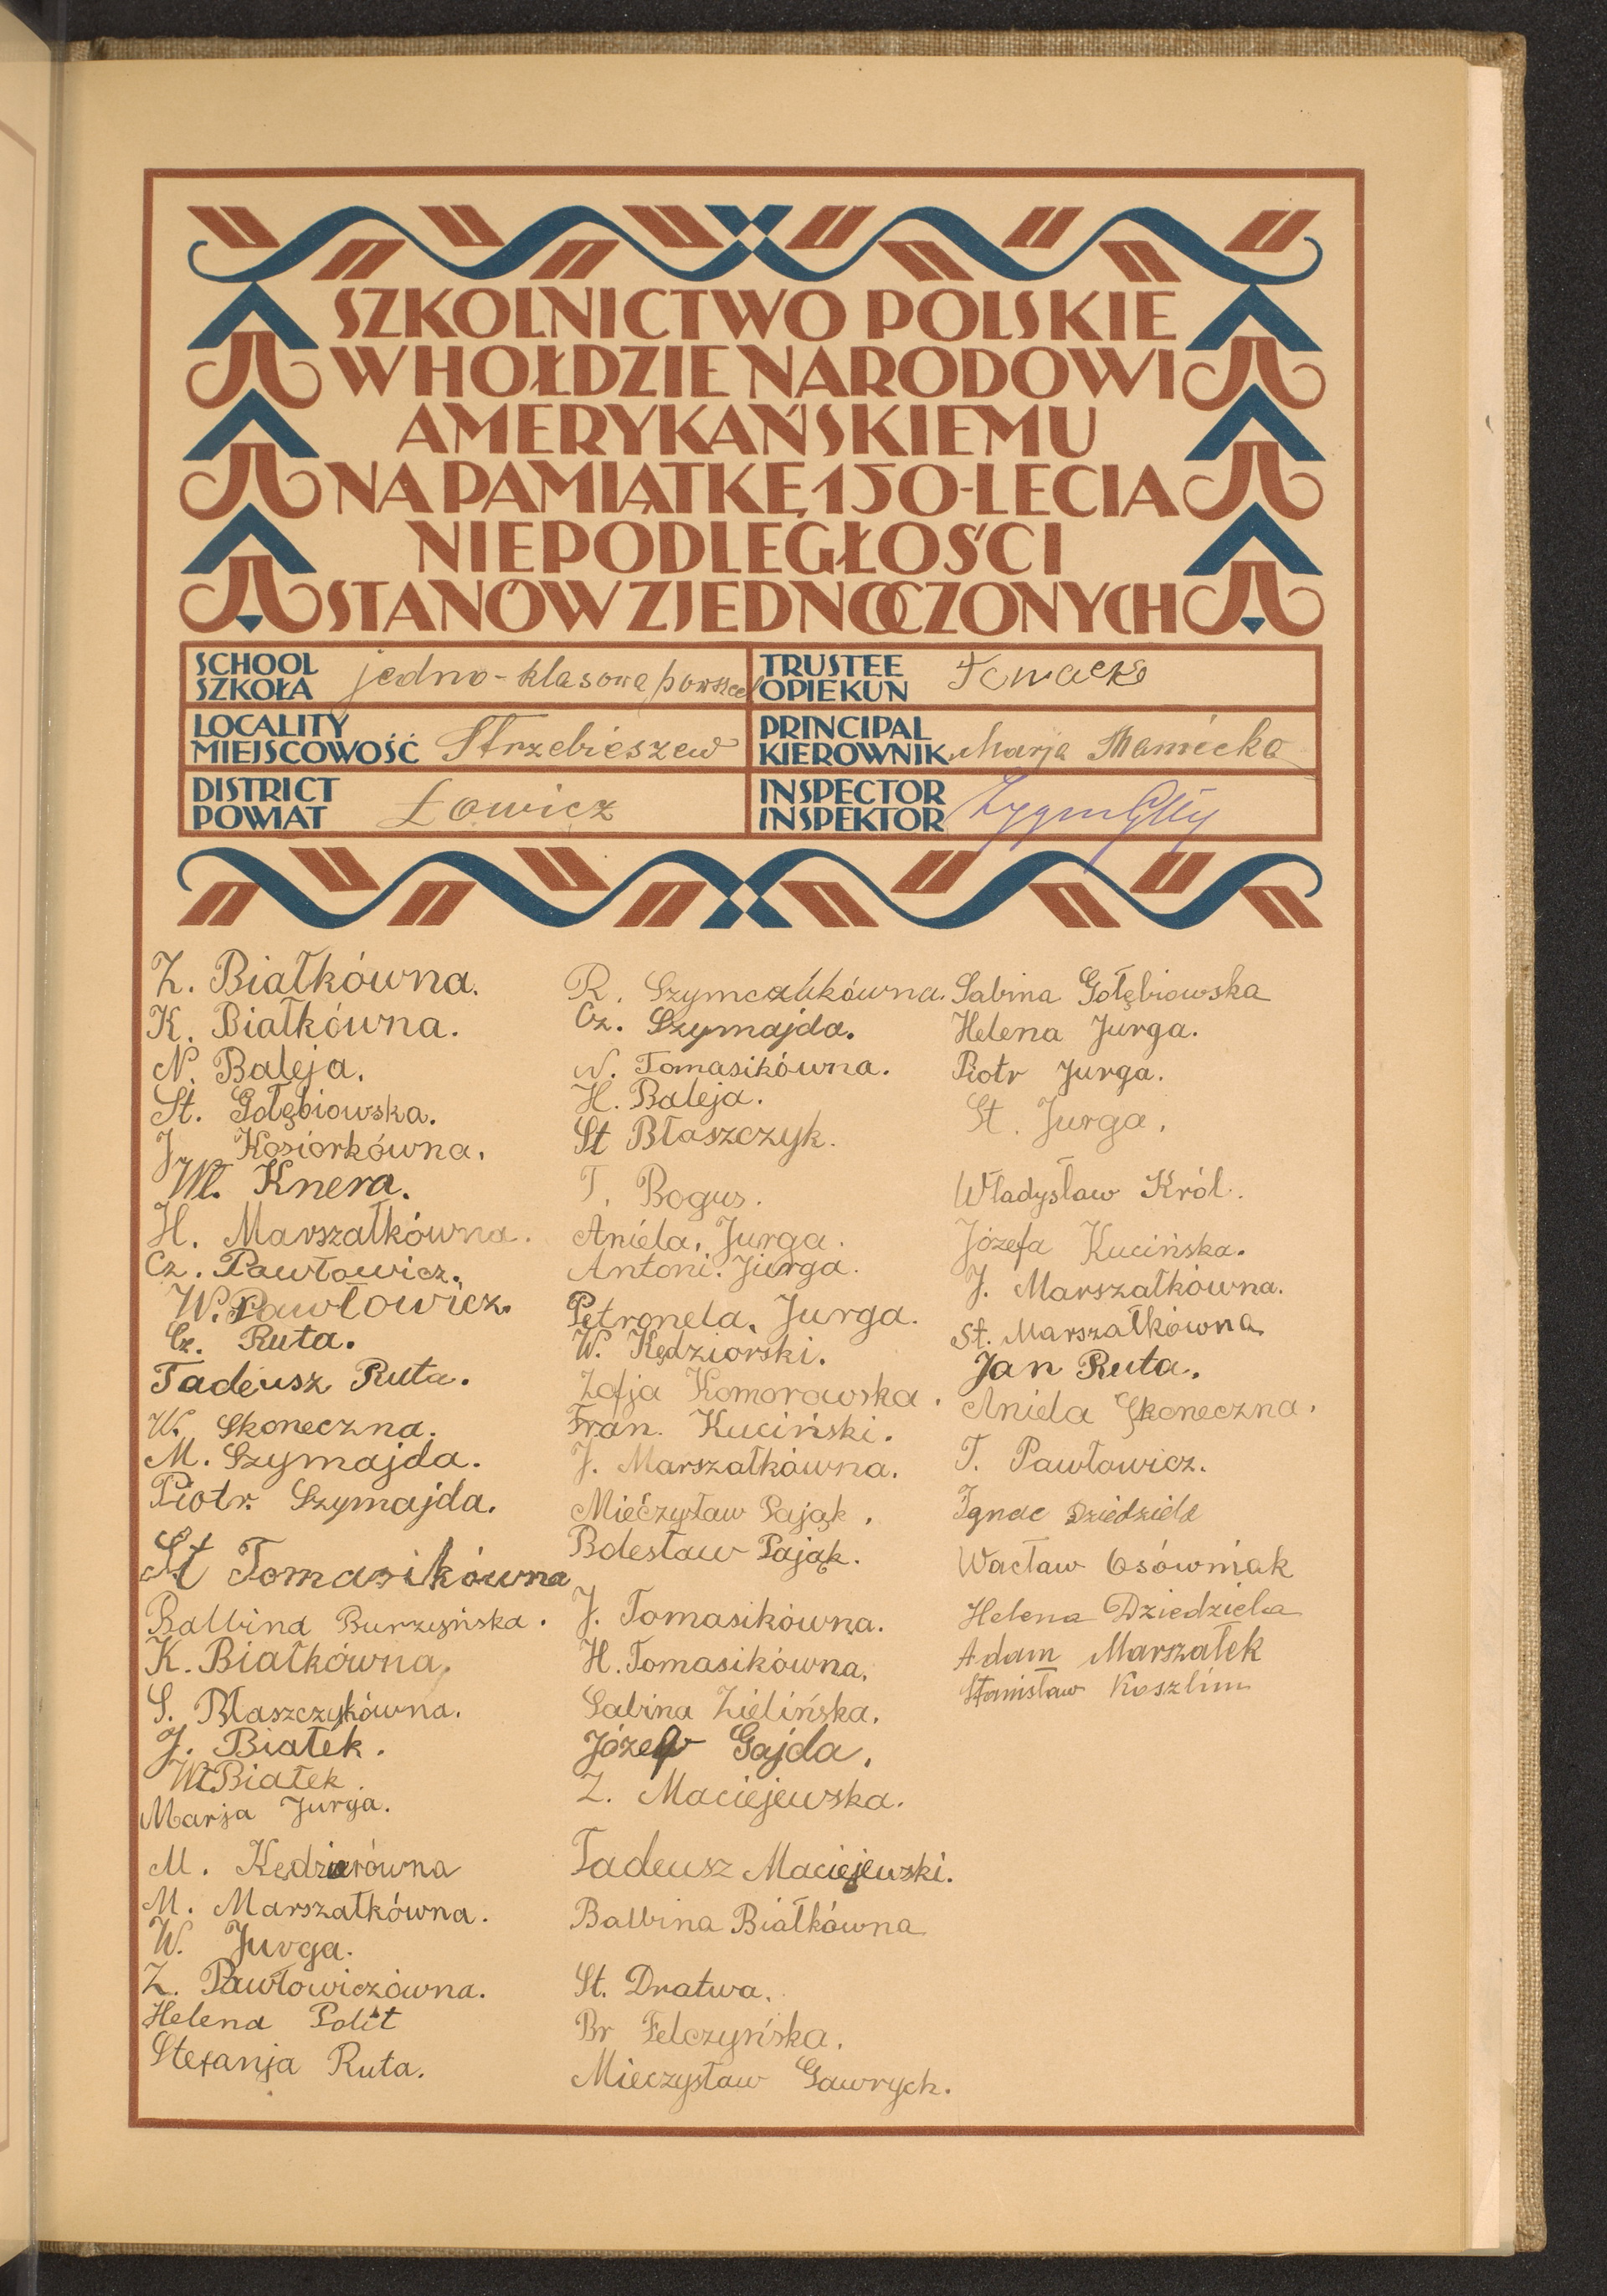 SZKOLNICTWO POLSKIE
W HOŁDZIE NARODOWI
AMERYKAŃSKIEMU
NA PAMIĄTKĘ 150-LECIA
NIEPODLEGŁOŚCI
STANÓW ZJEDNOCZONYCH
SCHOOL
SZKOŁA
jedno-klasowa
TRUSTEE
OPIEKUN
LOCALITY
MIEJSCOWOŚĆ
Strzebieszew
PRINCIPAL
KIEROWNIK
Marja
DISTRICT
POWIAT
Łowicz
INSPECTOR
INSPEKTOR
Z. Białkówna.
K. Białkówna.
N. Baleja.
St. Gołębiowska.
J. Kosiorkówna.
Wł. Knera.
H. Marszałkówna.
Cz. Pawłowicz.
W. Pawłowicz.
Cz. Ruta.
Tadeusz Ruta.
W. Skoneczna.
M. Szymajda.
Piotr. Szymajda.
St Tomasikówna
Balbina Burzyńska.
K. Białkówna.
S. Błaszczykówna.
J. Białek.
Wł Białek.
Marja Jurga.
M. Kędziorówna
M. Marszałkówna.
W. Jurga.
Z. Pawłowiczówna.
Helena Polit
Stefanja Ruta.
R. Szymczakówna.
Cz. Szymajda.
N. Tomasikówna.
H. Baleja.
St Błaszczyk.
T. Bogus.
Aniela. Jurga.
Antoni. Jurga.
Petronela. Jurga.
W. Kędziorski.
Zofja Komorowska.
Fran. Kuciński.
J. Marszałkówna.
Mieczysław Pająk.
Bolesław Pająk.
J. Tomasikówna.
H. Tomasikówna.
Sabina Zielińska.
Józef Gajda.
Z. Maciejewska.
Tadeusz Maciejewski.
Balbina Białkówna
St. Dratwa.
Br Felczyńska.
Mieczysław Gawrych.
Sabina Gołębiowska
Helena Jurga.
Piotr Jurga.
St. Jurga.
Władysław Król.
Józefa Kucińska.
J. Marszałkówna.
St. Marszałkówna
Jan Ruta.
Aniela Skoneczna.
T. Pawłowicz.
Ignac Dziedziela
Wacław Osówniak
Helena Dziedziela
Adam Marszałek
Stanisław Koszlim